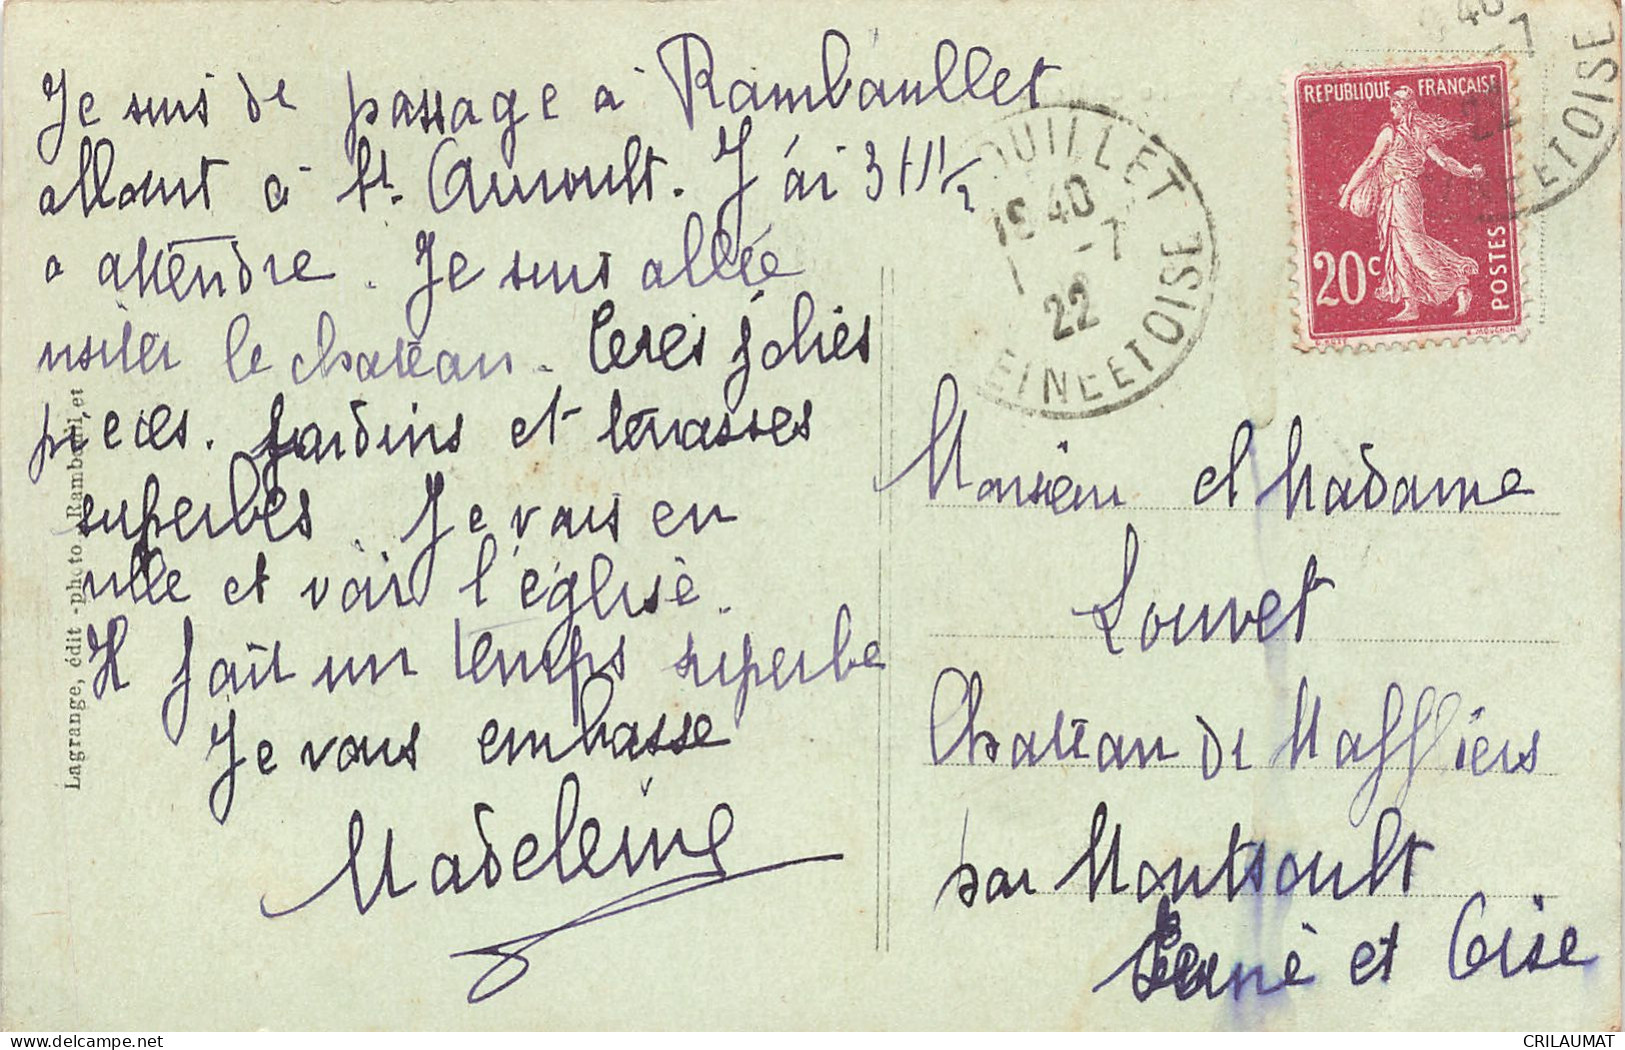 Je suis de passage à Rambouillet
allant à St. Arnoult. J'ai 3 H 1/2
a attendre. Je suis allée
visiter le chateau. très jolies
pieces. Jardins et terrasses
superbes. Je vais en
ville et voir l'église.
Il fait un temps superbe
Je vous embrasse
Madeleine
Lagrange, édit.-photo, Rambouillet
OUILLET
18 40
-7
22
SEINE ET OISE
REPUBLIQUE FRANÇAISE
20c
POSTES
E. MOUCHON
40
-7
22
ET OISE
Monsieur et Madame
Louvet
Chateau de Maffliers
par Montsoult
Seine et Oise
CRILAUMAT